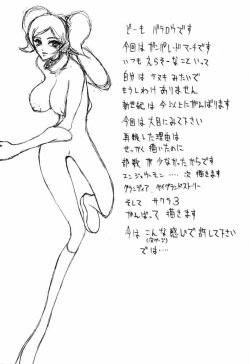 どーも パラロウです
今回はガンパレードマーチです
いつも えらそーなこといって
自分は クズ みたいで
もうしわけ ありません
新世紀は 今以上にがんばります
今回は 大目にみて下さい
再録した理由は
せっかく 描いたのに
部数が少なかったからです
エンジェリモン…… 次描きます
グランディア、ヴァイグランドストリー
そして サクラ3
がんばって 描きます
今は こんな感じで許して下さい
では……